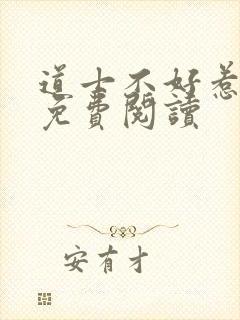 道士不好惹
免費閱讀
安有才